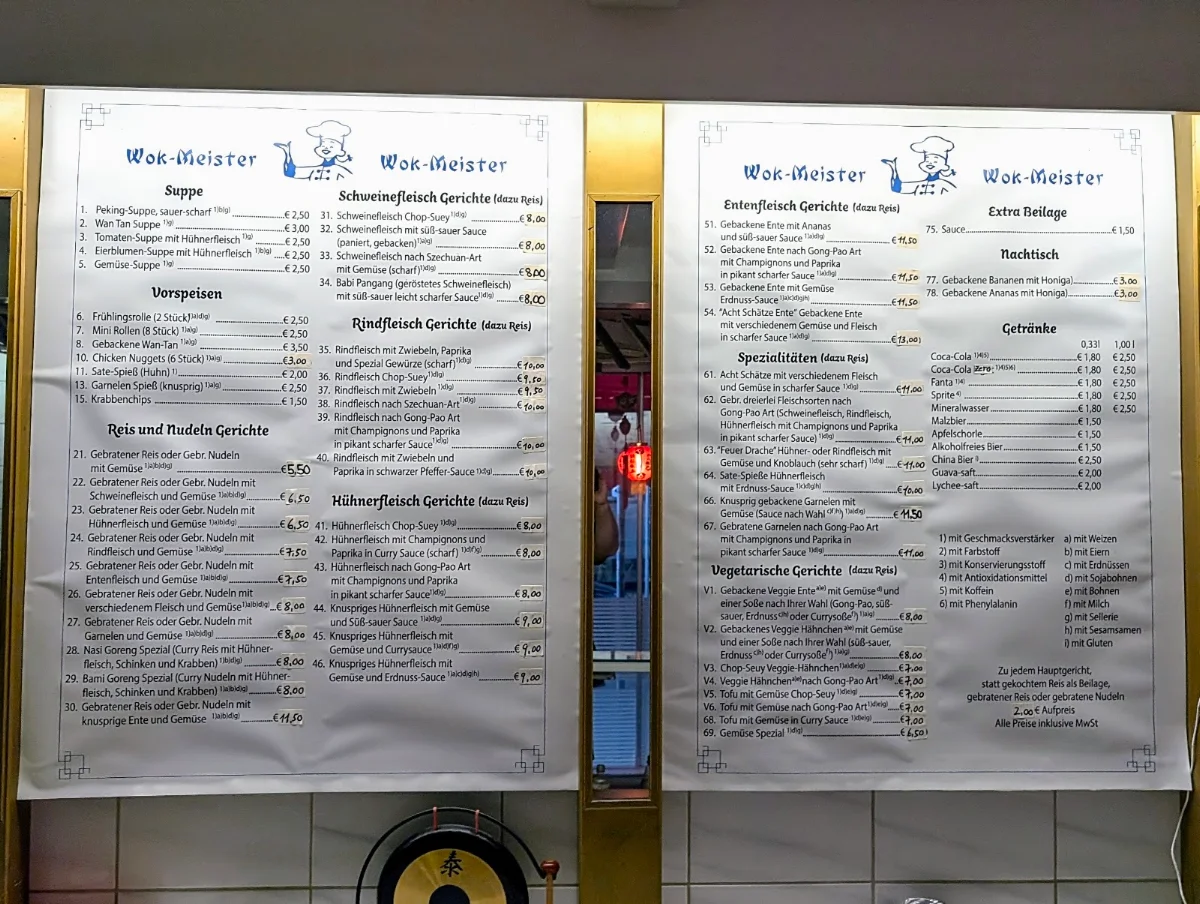 Wok-Meister Wok-Meister
Suppe
1. Peking-Suppe, sauer-scharf 1)b)g) € 2,50
2. Wan Tan Suppe 1)g) € 3,00
3. Tomaten-Suppe mit Hühnerfleisch 1)g) € 2,50
4. Eierblumen-Suppe mit Hühnerfleisch 1)b)g) € 2,50
5. Gemüse-Suppe 1)g) € 2,50
Vorspeisen
6. Frühlingsrolle (2 Stück) 1)a)d)g) € 2,50
7. Mini Rollen (8 Stück) 1)a)g) € 2,50
8. Gebackene Wan-Tan 1)a)g) € 3,50
10. Chicken Nuggets (6 Stück) 1)a)g) €3,00
11. Sate-Spieß (Huhn) 1) € 2,00
13. Garnelen Spieß (knusprig) 1)a)g) € 2,50
15. Krabbenchips € 1,50
Reis und Nudeln Gerichte
21. Gebratener Reis oder Gebr. Nudeln
mit Gemüse 1)a)b)d)g) €5,50
22. Gebratener Reis oder Gebr. Nudeln mit
Schweinefleisch und Gemüse 1)a)b)d)g) € 6,50
23. Gebratener Reis oder Gebr. Nudeln mit
Hühnerfleisch und Gemüse 1)a)b)d)g) € 6,50
24. Gebratener Reis oder Gebr. Nudeln mit
Rindfleisch und Gemüse 1)a)b)d)g) €7,50
25. Gebratener Reis oder Gebr. Nudeln mit
Entenfleisch und Gemüse 1)a)b)d)g) €7,50
26. Gebratener Reis oder Gebr. Nudeln mit
verschiedenem Fleisch und Gemüse 1)a)b)d)g) € 8,00
27. Gebratener Reis oder Gebr. Nudeln mit
Garnelen und Gemüse 1)a)b)d)g) € 8,00
28. Nasi Goreng Spezial (Curry Reis mit Hühner-
fleisch, Schinken und Krabben) 1)b)d)g) € 8,00
29. Bami Goreng Spezial (Curry Nudeln mit Hühner-
fleisch, Schinken und Krabben) 1)a)b)d)g) € 8,00
30. Gebratener Reis oder Gebr. Nudeln mit
knusprige Ente und Gemüse 1)a)b)d)g) € 11,50
Schweinefleisch Gerichte (dazu Reis)
31. Schweinefleisch Chop-Suey 1)d)g) € 8,00
32. Schweinefleisch mit süß-sauer Sauce
(paniert, gebacken) 1)a)g) € 8,00
33. Schweinefleisch nach Szechuan-Art
mit Gemüse (scharf) 1)d)g) € 8,00
34. Babi Pangang (geröstetes Schweinefleisch)
mit süß-sauer leicht scharfer Sauce 1)d)g) € 8,00
Rindfleisch Gerichte (dazu Reis)
35. Rindfleisch mit Zwiebeln, Paprika
und Spezial Gewürze (scharf) 1)d)g) € 10,00
36. Rindfleisch Chop-Suey 1)d)g) € 9,50
37. Rindfleisch mit Zwiebeln 1)d)g) € 9,50
38. Rindfleisch nach Szechuan-Art 1)d)g) € 10,00
39. Rindfleisch nach Gong-Pao Art
mit Champignons und Paprika
in pikant scharfer Sauce 1)d)g) € 10,00
40. Rindfleisch mit Zwiebeln und
Paprika in schwarzer Pfeffer-Sauce 1)d)g) € 10,00
Hühnerfleisch Gerichte (dazu Reis)
41. Hühnerfleisch Chop-Suey 1)d)g) € 8,00
42. Hühnerfleisch mit Champignons und
Paprika in Curry Sauce (scharf) 1)d)f)g) € 8,00
43. Hühnerfleisch nach Gong-Pao Art
mit Champignons und Paprika
in pikant scharfer Sauce 1)d)g) € 8,00
44. Knuspriges Hühnerfleisch mit Gemüse
und Süß-sauer Sauce 1)a)d)g) € 9,00
45. Knuspriges Hühnerfleisch mit
Gemüse und Currysauce 1)a)d)f)g) € 9,00
46. Knuspriges Hühnerfleisch mit
Gemüse und Erdnuss-Sauce 1)a)c)d)g)h) € 9,00
Wok-Meister Wok-Meister
Entenfleisch Gerichte (dazu Reis)
51. Gebackene Ente mit Ananas
und süß-sauer Sauce 1)a)d)g) € 11,50
52. Gebackene Ente nach Gong-Pao Art
mit Champignons und Paprika
in pikant scharfer Sauce 1)a)d)g) € 11,50
53. Gebackene Ente mit Gemüse
Erdnuss-Sauce 1)a)c)d)g)h) € 11,50
54. "Acht Schätze Ente" Gebackene Ente
mit verschiedenem Gemüse und Fleisch
in scharfer Sauce 1)a)d)g) € 13,00
Spezialitäten (dazu Reis)
61. Acht Schätze mit verschiedenem Fleisch
und Gemüse in scharfer Sauce 1)d)g) € 11,00
62. Gebr. dreierlei Fleischsorten nach
Gong-Pao Art (Schweinefleisch, Rindfleisch,
Hühnerfleisch mit Champignons und Paprika
in pikant scharfer Sauce) 1)d)g) € 11,00
63. "Feuer Drache" Hühner- oder Rindfleisch mit
Gemüse und Knoblauch (sehr scharf) 1)d)g) € 11,00
64. Sate-Spieße Hühnerfleisch
mit Erdnuss-Sauce 1)c)d)g)h) € 10,00
66. Knusprig gebackene Garnelen mit
Gemüse (Sauce nach Wahl c)f)h)) 1)a)d)g) € 11,50
67. Gebratene Garnelen nach Gong-Pao Art
mit Champignons und Paprika in
pikant scharfer Sauce 1)d)g) € 11,00
Vegetarische Gerichte (dazu Reis)
V1. Gebackene Veggie Ente a)e) mit Gemüse d) und
einer Soße nach Ihrer Wahl (Gong-Pao, süß-
sauer, Erdnuss c)h) oder Currysoße f)) 1)a)g) € 8,00
V2. Gebackenes Veggie Hähnchen a)e) mit Gemüse
und einer Soße nach Ihrer Wahl (süß-sauer,
Erdnuss c)h) oder Currysoße f)) 1)a)g) € 8.00
V3. Chop-Seuy Veggie-Hähnchen 1)a)d)e)g) € 7,00
V4. Veggie Hähnchen a)e) nach Gong-Pao Art 1)d)g) € 7,00
V5. Tofu mit Gemüse Chop-Seuy 1)d)e)g) € 7,00
V6. Tofu mit Gemüse nach Gong-Pao Art 1)d)e)g) € 7,00
68. Tofu mit Gemüse in Curry Sauce 1)d)e)g) € 7,00
69. Gemüse Spezial 1)d)g) € 6,50
Extra Beilage
75. Sauce € 1,50
Nachtisch
77. Gebackene Bananen mit Honiga) € 3.00
78. Gebackene Ananas mit Honiga) € 3,00
Getränke
0,33l 1,00l
Coca-Cola 1)4)5) € 1,80 € 2,50
Coca-Cola Zero 1)4)5)6) € 1,80 € 2,50
Fanta 1)4) € 1,80 € 2,50
Sprite 4) € 1,80 € 2,50
Mineralwasser € 1,80 € 2,50
Malzbier € 1,50
Apfelschorle € 1,50
Alkoholfreies Bier € 1,50
China Bier € 2,50
Guava-saft € 2,00
Lychee-saft € 2,00
1) mit Geschmacksverstärker a) mit Weizen
2) mit Farbstoff b) mit Eiern
3) mit Konservierungsstoff c) mit Erdnüssen
4) mit Antioxidationsmittel d) mit Sojabohnen
5) mit Koffein e) mit Bohnen
6) mit Phenylalanin f) mit Milch
g) mit Sellerie
h) mit Sesamsamen
i) mit Gluten
Zu jedem Hauptgericht,
statt gekochtem Reis als Beilage,
gebratener Reis oder gebratene Nudeln
2.00 € Aufpreis
Alle Preise inklusive MwSt
泰